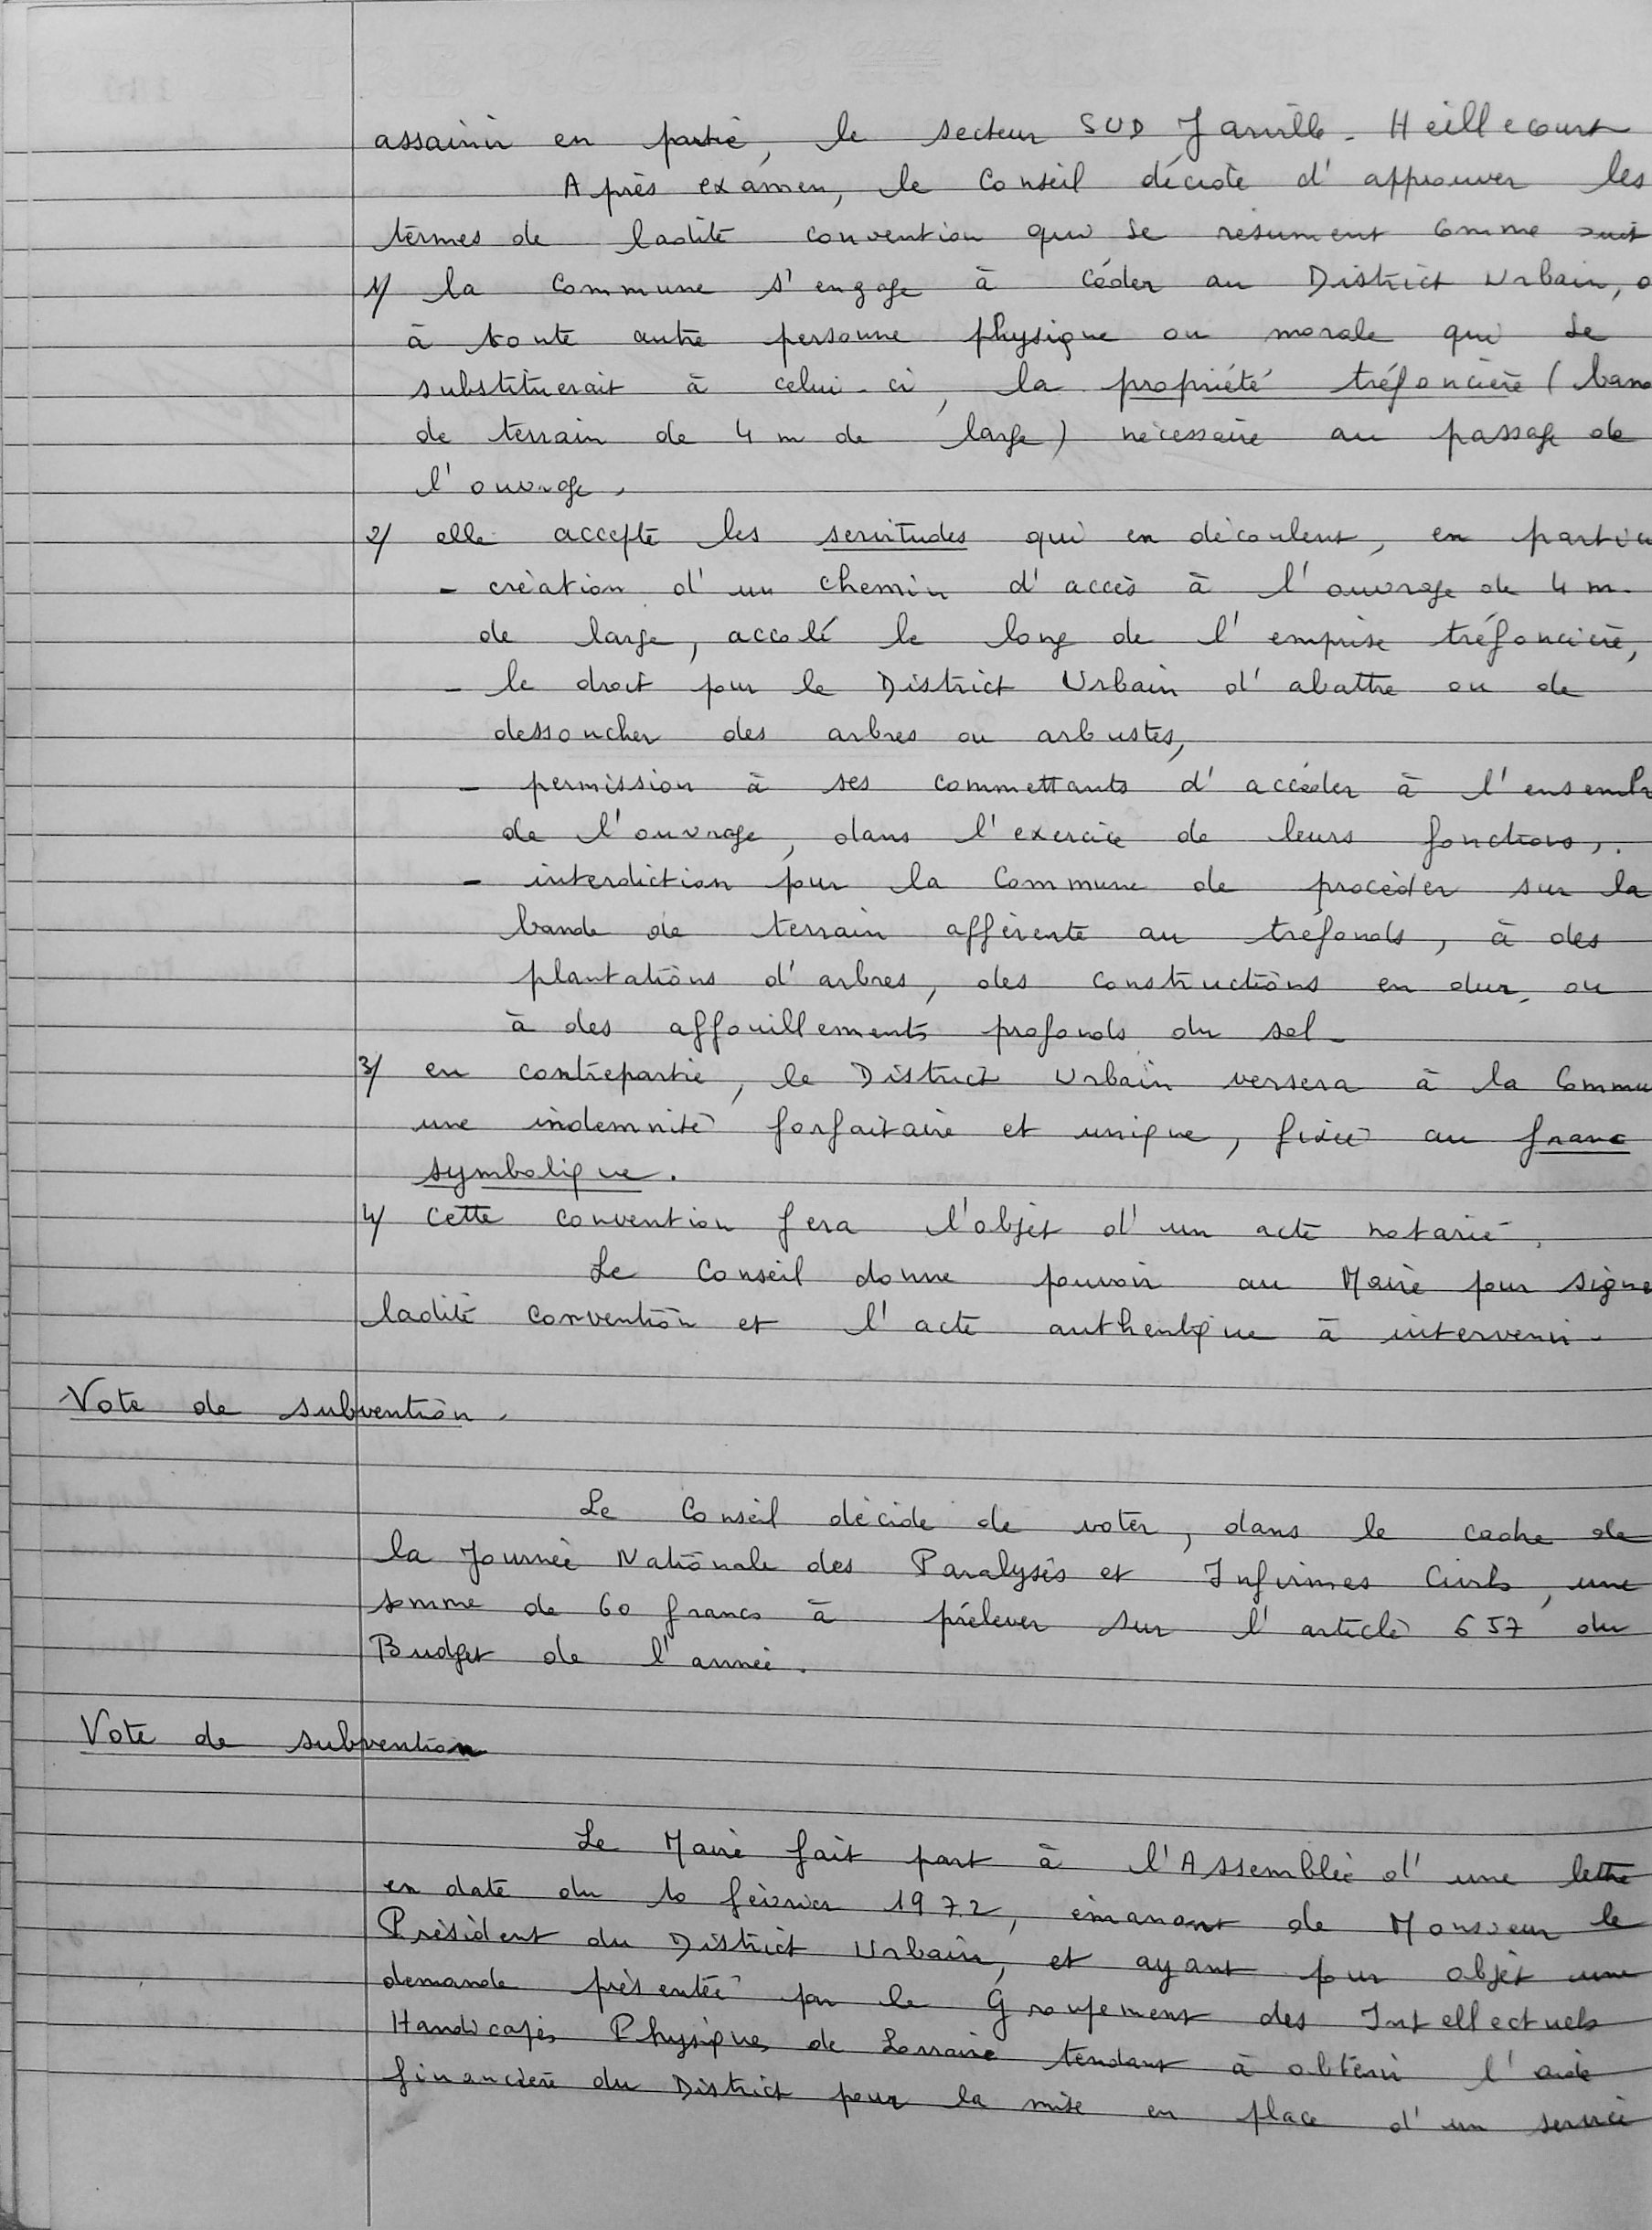 assainir en partie, le secteur SUD Jarville - Heillecourt
Après examen, le Conseil décide d'approuver les
termes de ladite convention qui se résument comme suit
1/ la Commune s'engage à céder au District Urbain, o
à toute autre personne physique ou morale qui se
substituerait à celui-ci, la propriété tréfoncière (ban
de terrain de 4 m de large) nécessaire au passage de
l'ouvrage.
2/ elle accepte les servitudes qui en découlent, en particu
- création d'un chemin d'accès à l'ouvrage de 4 m.
de large, accolé le long de l'emprise tréfoncière,
- le droit pour le District Urbain d'abattre ou de
dessoucher des arbres ou arbustes,
- permission à ses commettants d'accéder à l'ensembl
de l'ouvrage, dans l'exercice de leurs fonctions,.
- interdiction pour la Commune de procéder sur la
bande de terrain afférente au tréfonds, à des
plantations d'arbres, des constructions en dur, ou
à des affouillements profonds du sol-
3/ en contrepartie, le District Urbain versera à la Commu
une indemnité forfaitaire et unique, fixée au franc
symbolique.
4/ Cette convention fera l'objet d'un acte notarié.
Le Conseil donne pouvoir au Maire pour signe
ladite convention et l'acte authentique à intervenir.
Vote de subvention.
Le Conseil décide de voter, dans le cadre de
la Journée Nationale des Paralysés et Infirmes Civils, une
somme de 60 francs à prélever sur l'article 657 du
Budget de l'année.
Vote de subvention
Le Maire fait part à l'Assemblée d'une lettre
en date du 10 février 1972, émanant de Monsieur le
Président du District Urbain, et ayant pour objet une
demande présentée par le Groupement des Intellectuels
Handicapés Physiques de Lorraine tendant à obtenir l'aide
financière du District pour la mise en place d'un service